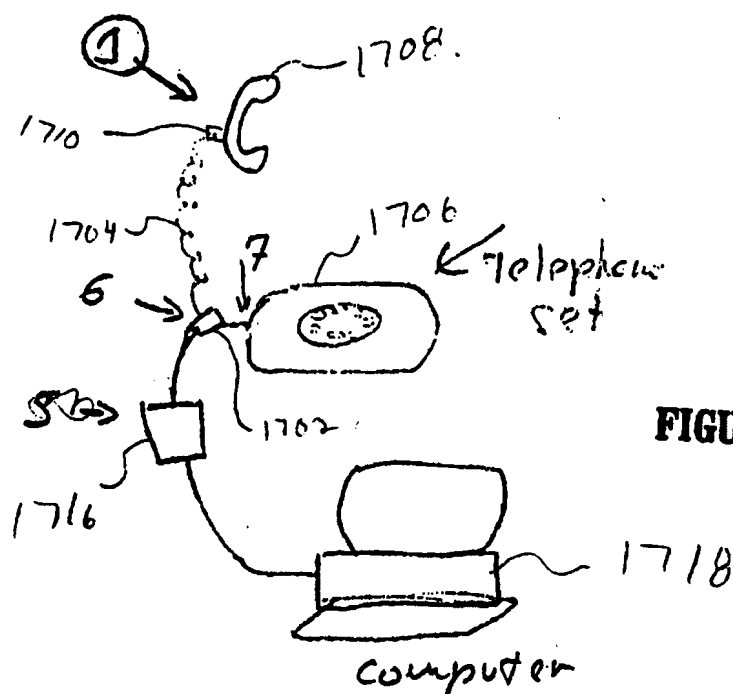 1
1708.
1710
1704
1706
7
6
Telephone
set
1702
FIGU
1716
1718
computer